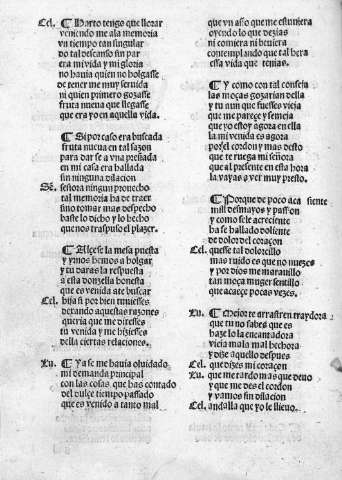 Cel. ¶ Harto tengo que llorar
veniendo me ala memoria
vn tiempo tan singular
do tal descanso sin par
era mi vida y mi gloria
no hauia quien no holgasse
de tener me muy seruida
ni quien primero gozasse
fruta nueua que llegasse
que era yo en aquella vida.
¶ Si por caso era buscada
fruta nueua en tal sazon
para dar se a vna presada
en mi casa era hallada
sin ninguna dilacion
señora ningun prouecho
tal memoria ha de traer
sino tomar mas despecho
baste lo dicho y lo hecho
que nos traspuso el plazer.
¶ Alçese la mesa puesta
y yrnos hemos a holgar
y tu daras la respuesta
a esta donzella honesta
que es venida ate buscar
Cel. hija si por bien tuuiesses
dexando aquessas razones
querria que me dixesses
tu venida y me hiziesses
della ciertas relaciones.
Lu. ¶ Ya se me hauia oluidado
mi demanda principal
con las cosas que has contado
del dulçe tiempo passado
que es venido a tanto mal
que vn año que me estuuiera
oyendo lo que dezias
ni comiera ni beuiera
contemplando que tal hera
essa vida que tenias.
¶ Y como con tal conseja
las moças gozarian della
y tu aun que fuesses vieja
que me pareçe y semeja
que yo estoy agora en ella
la mi venida es agora
por el cordon y mas desto
que te ruega mi señora
que al presente en esta hora
la vayas a ver muy presto.
¶ Porque de poco aca siente
mil desmayos y passion
y como se le acreciente
ha se hallado doliente
de dolor del coraçon
Cel. quesse tal dolorcillo
mas ruido es que no nuezes
y por dios me marauillo
tan moça muger sentillo
que acaeçe pocas vezes.
Lu. ¶ Mejor te arrastren traydora
que tu no sabes que es
haze lo la encantadora
vieja mala mal hechora
y dize aquello despues
Cel. que dizes mi coraçon
Lu. que me tardo mas que deuo
y que me des el cordon
y vamos sin dilacion
Cel. andalla que yo le lleuo.